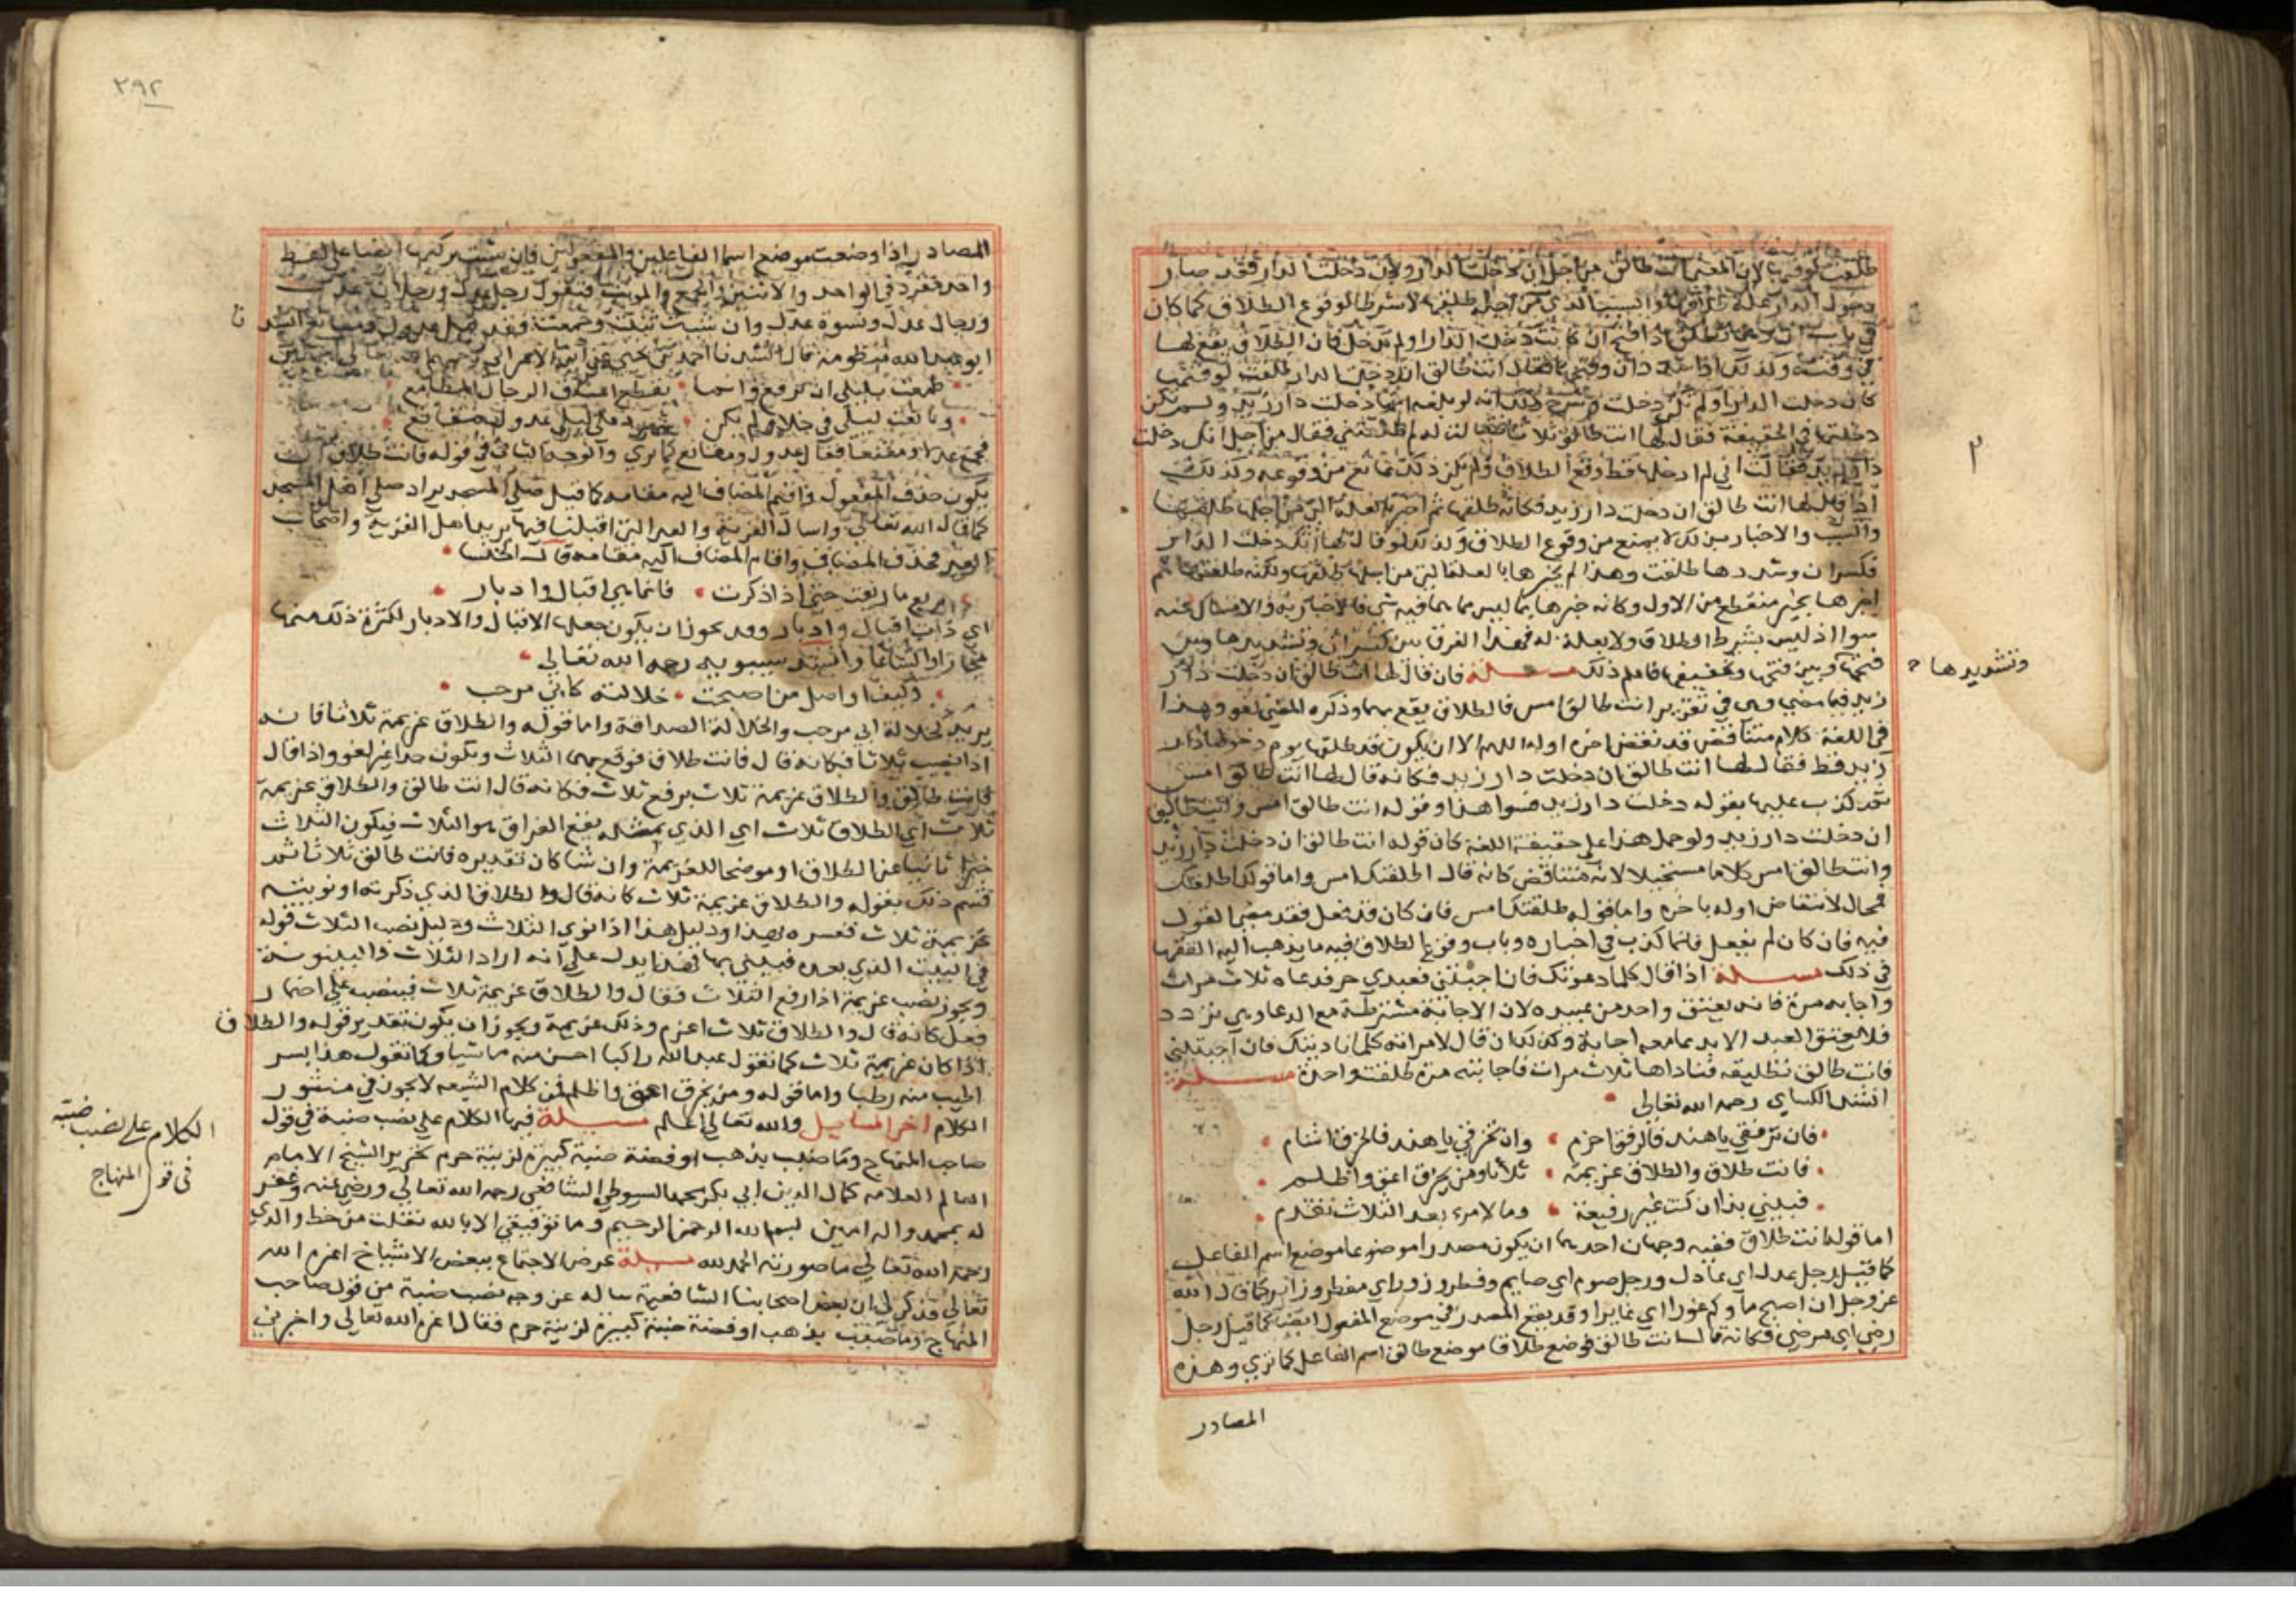 طلقت لوقتها لان المعنى انت طالق من اجل ان دخلت الدار ولان دخلت الدار فقد صار
دخول الدار علة طلاقها والسبب الذي من اجله طلقها لا شرطا لوقوع الطلاق كما كان
في وقته وكذلك اذا شدد ان وفتحها فقال انت طالق انك دخلت الدار طلقت لوقتها
كان دخلت الدار او لم تكن دخلت وشرح ذلك انه لو بلغه انها دخلت دار زيد ولم تكن
دخلتها في الحقيقة فقال لها انت طالق ثلاثا فقالت له لم طلقتني فقال من اجل انك دخلت
دار زيد فقالت اني لم ادخلها قط وقع الطلاق ولم يكن ذلك بمانع من وقوعه وكذلك
اذا قال لها انت طالق ان دخلت دار زيد فكانه طلقها ثم اخبر بالعلة التي من اجلها طلقها
والسبب والاخبار بين ذلك لا يمنع من وقوع الطلاق وكذلك لو قال لها انك دخلت الدار
فكسر ان وشددها طلقت وهذا لم يخبرها بالعلة التي من اجلها طلقها ولكنه طلقها ثم
اخبرها بخبر منقطع من الاول وكانه خبرها بما ليس مما هما فيه شي فالاخبار به والامساك عنه
سوا اذ ليس بشرط الطلاق ولا بعلة له فهذا الفرق بين كسر ان وتشديدها وبين
فتحها وبين فتحها وتخفيفها فاعلم ذلك مسلة فان قال لها انت طالق ان دخلت دار
وتشديدها
زيد فيما مضى وهي في تقدير انت طالق امس فالطلاق يقع بها وذكره المضي لغو وهذا
في اللغة كلام متناقض قد نقض اخره اوله اللهم الا ان يكون قد طلقها يوم دخولها دار
زيد قط فقال لها انت طالق ان دخلت دار زيد فكانه قال لها انت طالق امس
فقد كذب عليها بقوله دخلت دار زيد فسوا هذا وقوله انت طالق امس وانت طالق
ان دخلت دار زيد ولو حمل هذا على حقيقة اللغة كان قوله انت طالق ان دخلت دار زيد
وانت طالق امس كلاما مستحيلا لانه متناقض كانه قال اطلقتك امس واما قولك اطلقك
فمحال لانتقاض اوله باخره واما قوله طلقتك امس فان كان قد فعل فقد مضى القول
فيه فان كان لم يفعل فانما كذب في اخباره وباب وقوع الطلاق فيه ما يذهب اليه الفقها
في ذلك مسلة اذا قال كلما دعوتك فان اجبتني فعبدي حر فدعاه ثلاث مرات
واجابه مرة فانه يعتق واحد من عبيده لان الاجابة مشترطة مع الدعاء وهي تردد
فلا يعتق العبد الا بدعا معه اجابة وكذلك ان قال لامراته كلما ناديتك فان اجبتني
فانت طالق تطليقه فناداها ثلاث مرات فاجابته مرة طلقت واحدة مسلة
انشد الكساي رحمه الله تعالى
فان ترفقي يا هند فالرفق احزم وان تخرقي يا هند فالخرق اشام
فانت طلاق والطلاق عزيمة ثلاثا ومن يخرق اعق واظلم
فبيني بذا ان كنت غير رفيقة وما لامرء بعد الثلاث تقدم
اما قوله انت طلاق ففيه وجهان احدهما ان يكون مصدرا موضوعا موضع اسم الفاعل
كما قيل رجل عدل اي عادل ورجل صوم اي صايم وفطر وزور اي مفطر وزاير كما قال الله
عز وجل ان اصبح ماؤكم غورا اي غايرا وقد يقع المصدر في موضع المفعول ايضا كما قيل رجل
رضي اي مرضي فكانه قال انت طالق فوضع طلاقا موضع طالق اسم الفاعل كما ترى وهذه
المصادر
٢٩٢
المصادر اذا وضعت موضع اسما الفاعلين والمفعولين فان شئت تركتها ايضا على لفظ
واحد فتفرد في الواحد والاثنين والجمع والمونث فتقول رجل عدل ورجلان عدل
ورجال عدل ونسوة عدل وان شئت ثنيت وجمعت فقد قيل عدول ومقانع انشد
ابو عبد الله نفطويه قال انشدنا احمد بن يحيى عن ابن الاعرابي
طمعت بليلى ان تريع وانما تقطع اعناق الرجال المطامع
وبايعت ليلى في خلاء ولم يكن شهود على ليلى عدول مقانع
فجمع عدلا ومقنعا فقال عدول ومقانع كما ترى والوجه الثاني في قوله فانت طلاق ان
يكون حذف المفعول واقام المضاف اليه مقامه كما قيل صلى المسجد يراد صلى اهل المسجد
كما قال الله تعالى واسال القرية والعير التي اقبلنا فيها يريد اهل القرية واصحاب
العير فحذف المضاف واقام المضاف اليه مقامه قالت الخنسا
ترتع ما رتعت حتى اذا ذكرت فانما هي اقبال وادبار
اي ذات اقبال وادبار وقد يجوز ان يكون جعلها الاقبال والادبار لكثرة ذلك منها
مجازا واتساعا وانشد سيبويه رحمه الله تعالى
وكيف اواصل من اصبحت خلالته كابي مرحب
يريد كخلالة ابي مرحب والخلالة الصداقة واما قوله والطلاق عزيمة ثلاثا فانه
اذا نصب ثلاثا فكانه قال فانت طلاق فوقع بها الثلاث ويكون هذا غير لغو واذا قال
فانت طالق والطلاق عزيمة ثلاث برفع ثلاث فكانه قال انت طالق والطلاق عزيمة
ثلاث اي الطلاق ثلاث اي الذي بمثله يقع الفراق هو الثلاث فيكون الثلاث
خبرا ثانيا عن الطلاق او موضحا للعزيمة وان شا كان تقديره فانت طالق ثلاثا ثم
فسر ذلك بقوله والطلاق عزيمة ثلاث كانه قال والطلاق الذي ذكرته او نويته
عزيمة ثلاث ففسره بهذا ودليل هذا اذا نوى الثلاث ودليل نصب الثلاث قوله
في البيت الذي بعده فبيني بها فهذا يدل على انه اراد الثلاث والبينونة
ويجوز نصب عزيمة اذا رفع الثلاث فقال والطلاق عزيمة ثلاث فينصب على اضمار
فعل كانه قال والطلاق ثلاث اعزم وذلك عزيمة ويجوز ان يكون تقدير قوله والطلاق
اذا كان عزيمة ثلاث كما تقول عبد الله راكبا احسن منه ماشيا وكما تقول هذا بسر
اطيب منه رطبا واما قوله ومن يخرق اعق واظلم
الكلام اخر المسايل والله تعالى اعلم مسيلة فيها الكلام على نصب ضبة في قول
صاحب المنهاج وما ضبب بذهب او فضة ضبة كبيرة لزينة حرم تحرير الشيخ الامام
العالم العلامه كمال الدين ابي بكر محمد السيوطي الشافعي رحمه الله تعالى ورضي عنه وغفر
له بمحمد واله امين بسم الله الرحمن الرحيم وما توفيقي الا بالله نقلت من خط والدي
رحمه الله تعالى ما صورته الحمد لله مسيلة عرض الاجتماع ببعض الاشياخ اعزه الله
تعالى فذكر لي ان بعض اصحابنا الشافعية ساله عن وجه نصب ضبة من قول صاحب
المنهاج وما ضبب بذهب او فضة ضبة كبيرة لزينة حرم فقال اعزه الله تعالى واخبرني
الكلام على نصب ضبة
في قول المنهاج